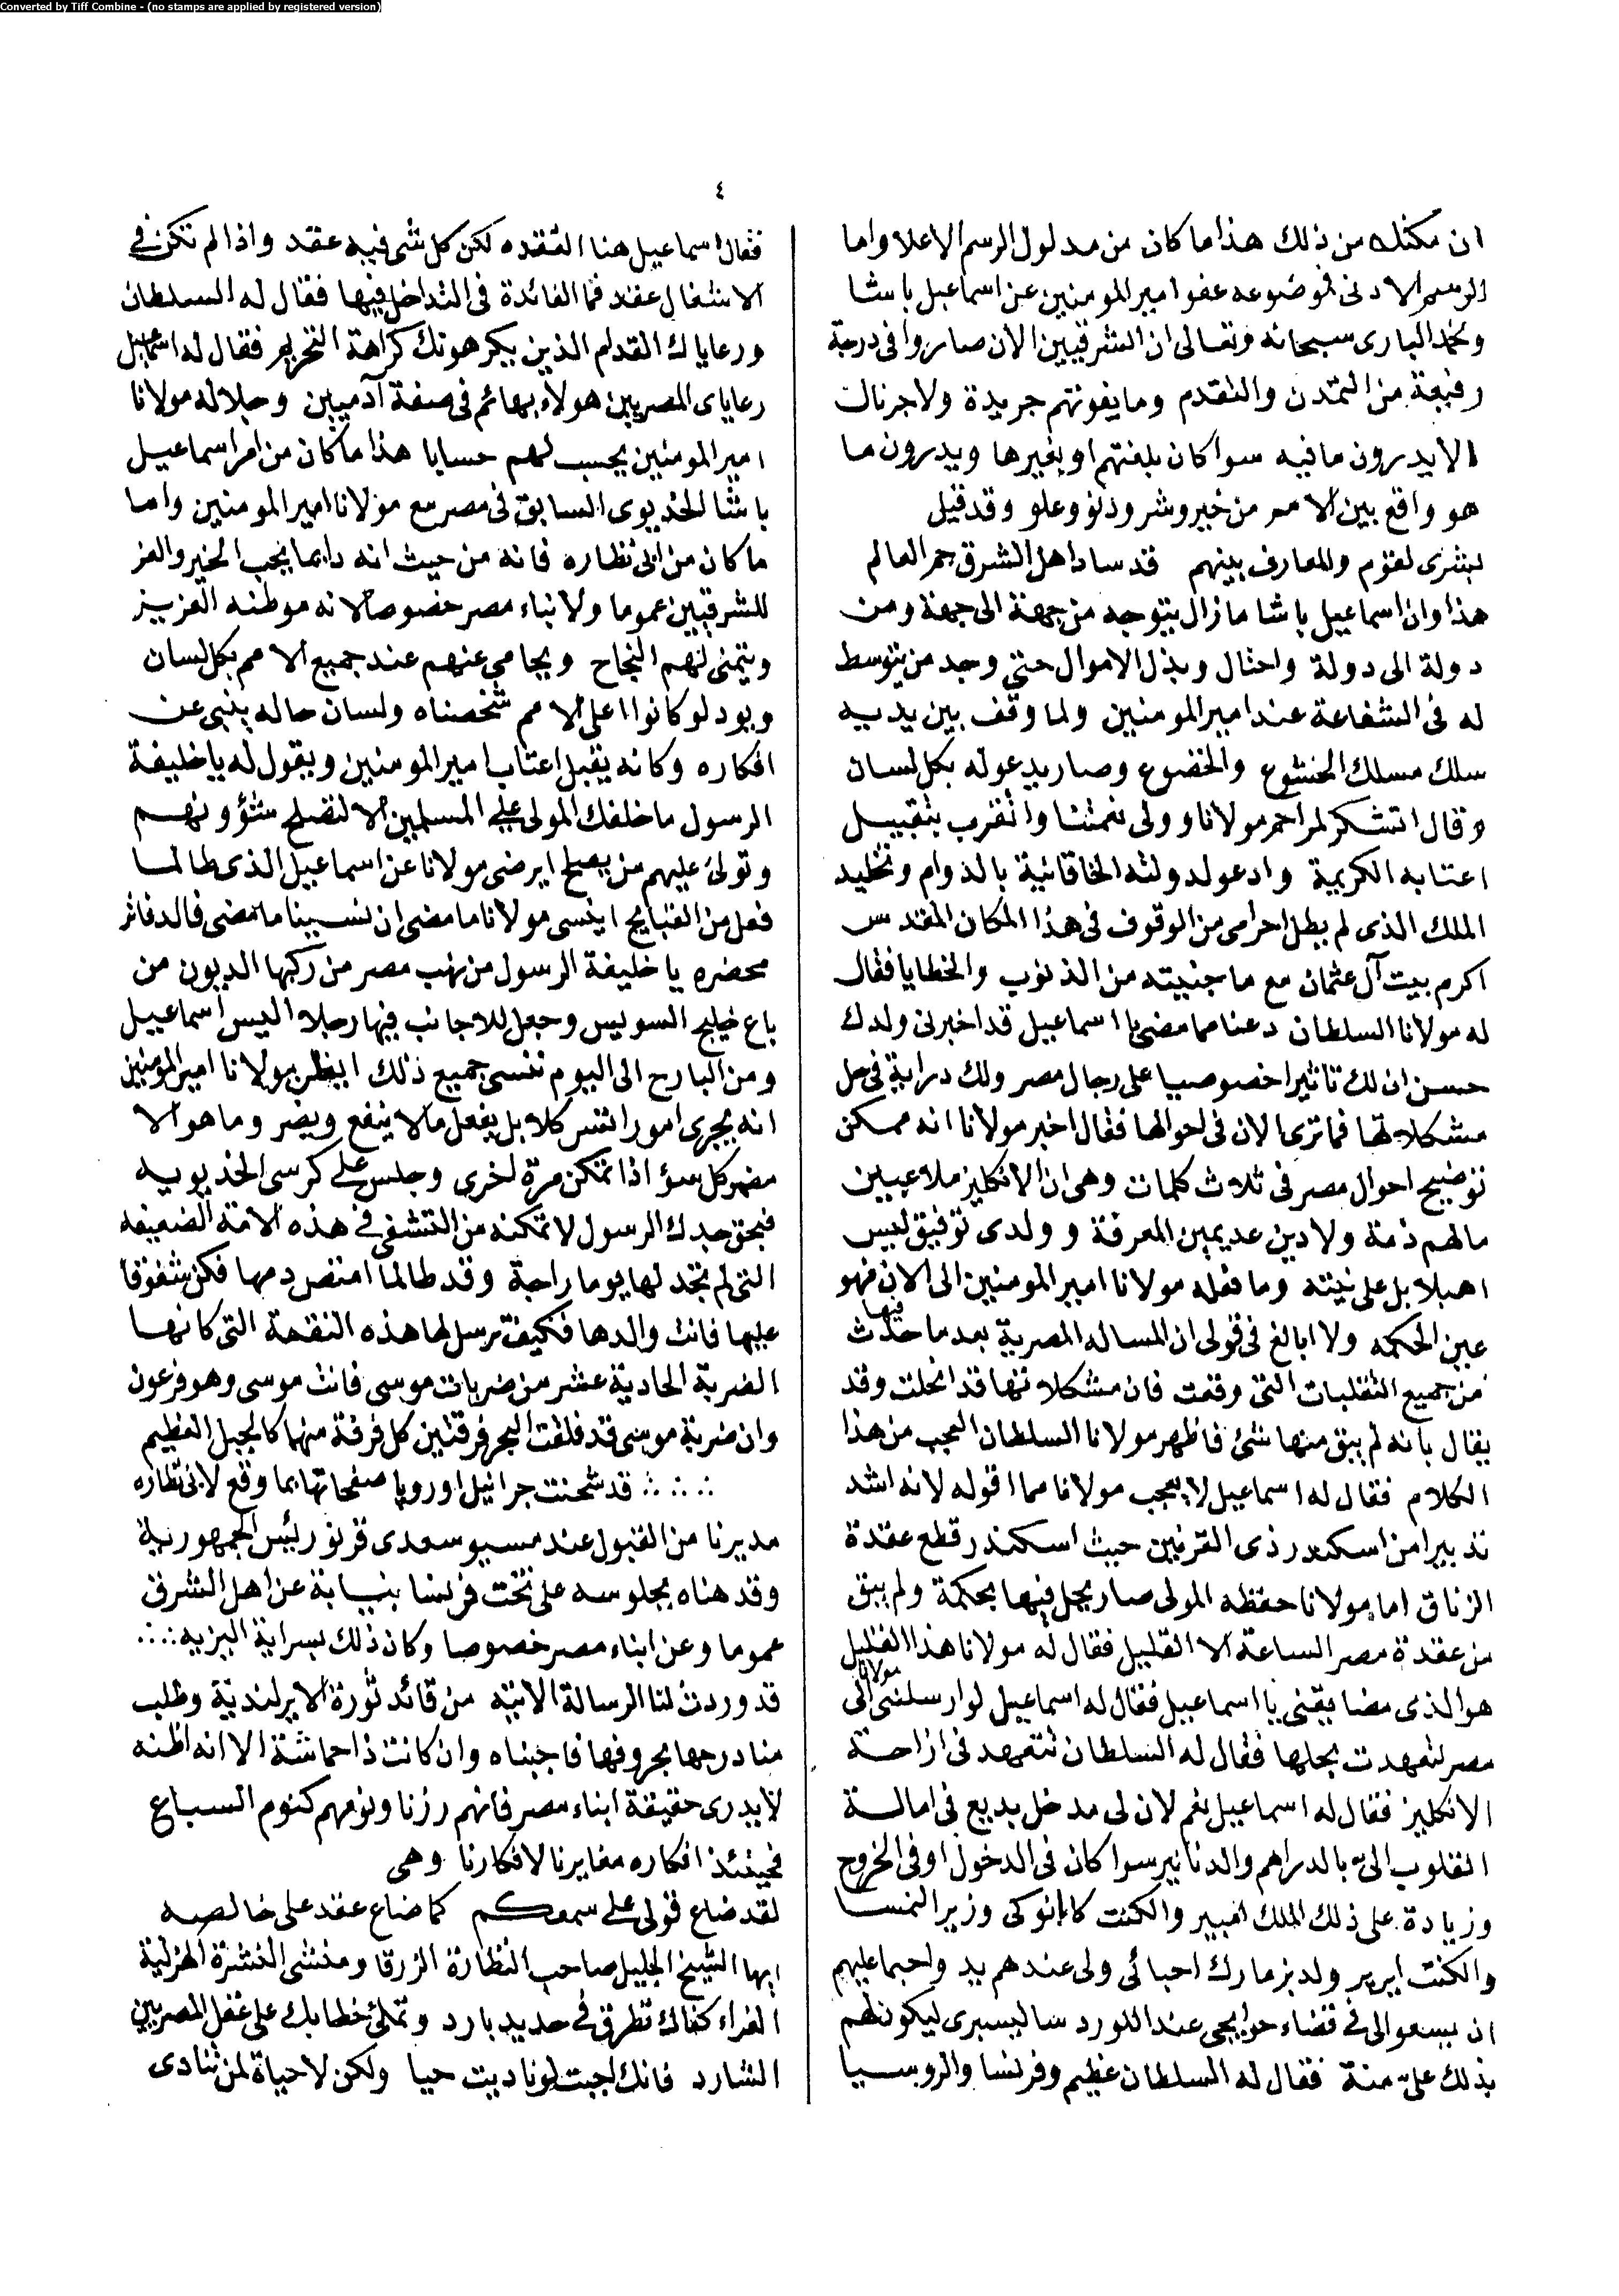 Converted by Tiff Combine - (no stamps are applied by registered version)
٤
ان مكنك من ذلك هذا ما كان من مدلول الرسم الاعلا واما
الرسم الادنى فموضوعه عفو امير المومنين عن اسماعيل باشا
ونحمد البارى سبحانه وتعالى ان الشرقيين الان صاروا فى درجة
رفيعة من التمدن والتقدم وما يفوتهم جريدة ولا جرنال
الا يدرون ما فيه سوا كان بلغتهم او بغيرها ويدرون ما
هو واقع بين الامم من خير وشر ودنو وعلو وقد قيل
بشرى لقوم والمعارف بينهم قد ساد اهل الشرق جم العالم
هذا وان اسماعيل باشا ما زال يتوجه من جهة الى جهة ومن
دولة الى دولة واحتال وبذل الاموال حتى وجد من يتوسط
له فى الشفاعة عند امير المومنين ولما وقف بين يديه
سلك مسلك الخشوع والخضوع وصار يدعو له بكل لسان
وقال اتشكر لمراحم مولانا وولى نعمتنا واتقرب بتقبيل
اعتابه الكريمة وادعو لدولته الخاقانية بالدوام وتخليد
الملك الذى لم يطل احرامى من الوقوف فى هذا المكان المقدس
اكرم بيت آل عثمان مع ما جنيته من الذنوب والخطايا فقال
له مولانا السلطان دعنا مما مضى يا اسماعيل قد اخبرنى ولدك
حسن ان لك تاثيرا خصوصيا على رجال مصر ولك دراية فى حل
مشكلاتها فما ترى الان فى احوالها فقال اخبر مولانا انه ممكن
توضيح احوال مصر فى ثلاث كلمات وهى ان الانكليز ملاعيبين
مالهم ذمة ولا دين عديمين المعرفة وولدى توفيق ليس
اهبلا بل على نيته وما فعله مولانا امير المومنين الى الان فهو
عين الحكمه ولا ابالغ فى قولى ان المساله المصرية بعد ما حدث فيها
من جميع التقلبات التى وقعت فان مشكلاتها قد انحلت وقد
يقال بانه لم يبق منها شئ فاظهر مولانا السلطان العجب من هذا
الكلام فقال له اسماعيل لا يعجب مولانا مما اقوله لانه اشد
تدبيرا من اسكندر ذى القرنين حيث اسكندر قطع عقدة
الزناق اما مولانا حفظه المولى صار يحل فيها بحكمة ولم يبق
من عقدة مصر الساعة الا القليل فقال له مولانا هذا القليل
هو الذى مضايقنى يا اسماعيل فقال له اسماعيل لو ارسلنى مولانا الى
مصر لتعهدت بحلها فقال له السلطان تتعهد فى ازاحة
الانكليز فقال له اسماعيل نعم لان لى مدخل بديع فى امالة
القلوب الىّ بالدراهم والدنانير سوا كان فى الدخول او فى الخروج
وزيادة على ذلك الملك امبير والكنت كالنوكى وزير النمسا
والكنت ايربر ولد بزمارك احبائى ولى عندهم يد واحبما عليهم
ان يسعوا لى فى قضاء حوايجى عند اللورد سالیسبرى ليكون لهم
بذلك علىّ منة فقال له السلطان عظيم وفرنسا والروسيا
فقال اسماعيل هنا العقده لكن كل شى فيه عقد واذا لم تكن فى
الاشغال عقد فما الفائدة فى التداخل فيها فقال له السلطان
ورعاياك القدام الذين يكرهونك كراهة التحريم فقال له اسماعيل
رعاياى المصريين هولاء بهائم فى صفة آدميين وجلالة مولانا
امير المومنين يحسب لهم حسابا هذا ما كان من امر اسماعيل
باشا الخديوى السابق فى مصر مع مولانا امير المومنين واما
ما كان من ابى نظاره فانه من حيث انه دايما يحب الخير والعز
للشرقيين عموما ولابناء مصر خصوصا لانه موطنه العزيز
ويتمنى لهم النجاح ويحامى عنهم عند جميع الامم بكل لسان
ويود لو كانوا اعلى الامم شخصناه ولسان حاله ينبى عن
افكاره وكانه يقبل اعتاب امير المومنين ويقول له يا خليفة
الرسول ما خلفك المولى على المسلمين الا لتصلح شؤونهم
وتولى عليهم من يصلح ايرضى مولانا عن اسماعيل الذى طالما
فعل من القبايح اينسى مولانا ما مضى ان نسينا ما مضى فالدفاتر
محضره يا خليفة الرسول من نهب مصر من ركبها الديون من
باع خليج السويس وجعل للاجانب فيها رجلا اليس اسماعيل
ومن البارح الى اليوم ننسى جميع ذلك ايظن مولانا امير المومنين
انه يجرى امورا تسر كلا بل يفعل ما لا ينفع ويضر وما هو الا
مضمر كل سؤ اذا تمكن مرة اخرى وجلس على كرسى الخديويه
فبحق جدك الرسول لا تمكنه من التشفى فى هذه الامة الضعيفه
التى لم تجد لها يوما راحة وقد طالما امتص دمها فكن شفوقا
عليها فانت والدها فكيف ترسل لها هذه النقمة التى كانها
الضربة الحادية عشر من ضربات موسى فانت موسى وهو فرعون
وان ضربة موسى قد فلقت البحر فرقتين كل فرقة منهما كالجبل العظيم
∴ ∴ ∴ قد شحنت جرانيل اوروپا صفحاتها بما وقع لابى نظاره
مديرنا من القبول عند مسيو سعدى قرنو رئيس الجمهورية
وقد هناه بجلوسه على تخت فرنسا بنيابة عن اهل الشرق
عموما وعن ابناء مصر خصوصا وكان ذلك بسراية اليزيه ∴
قد وردت لنا الرسالة الاتيه من قائد ثورة الايرلندية وطلب
منا درجها بحروفها فاجبناه وان كانت ذا حماشة الا انه اظنه
لا يدرى حقيقة ابناء مصر فانهم رزنا ونومهم كنوم السباع
فحينئذ افكاره مغايرنا لافكارنا وهى
لقد ضاع قولى على سمعكم كما ضاع عقد على خالصه
ايها الشيخ الجليل صاحب النظارة الزرقا ومنشى النشرة الهزلية
الغراء كفاك تطرق فى حديد بارد وتملى خطابك على عقل المصريين
الشارد فانك لجبت لو ناديت حيا ولكن لا حياة لمن تنادى